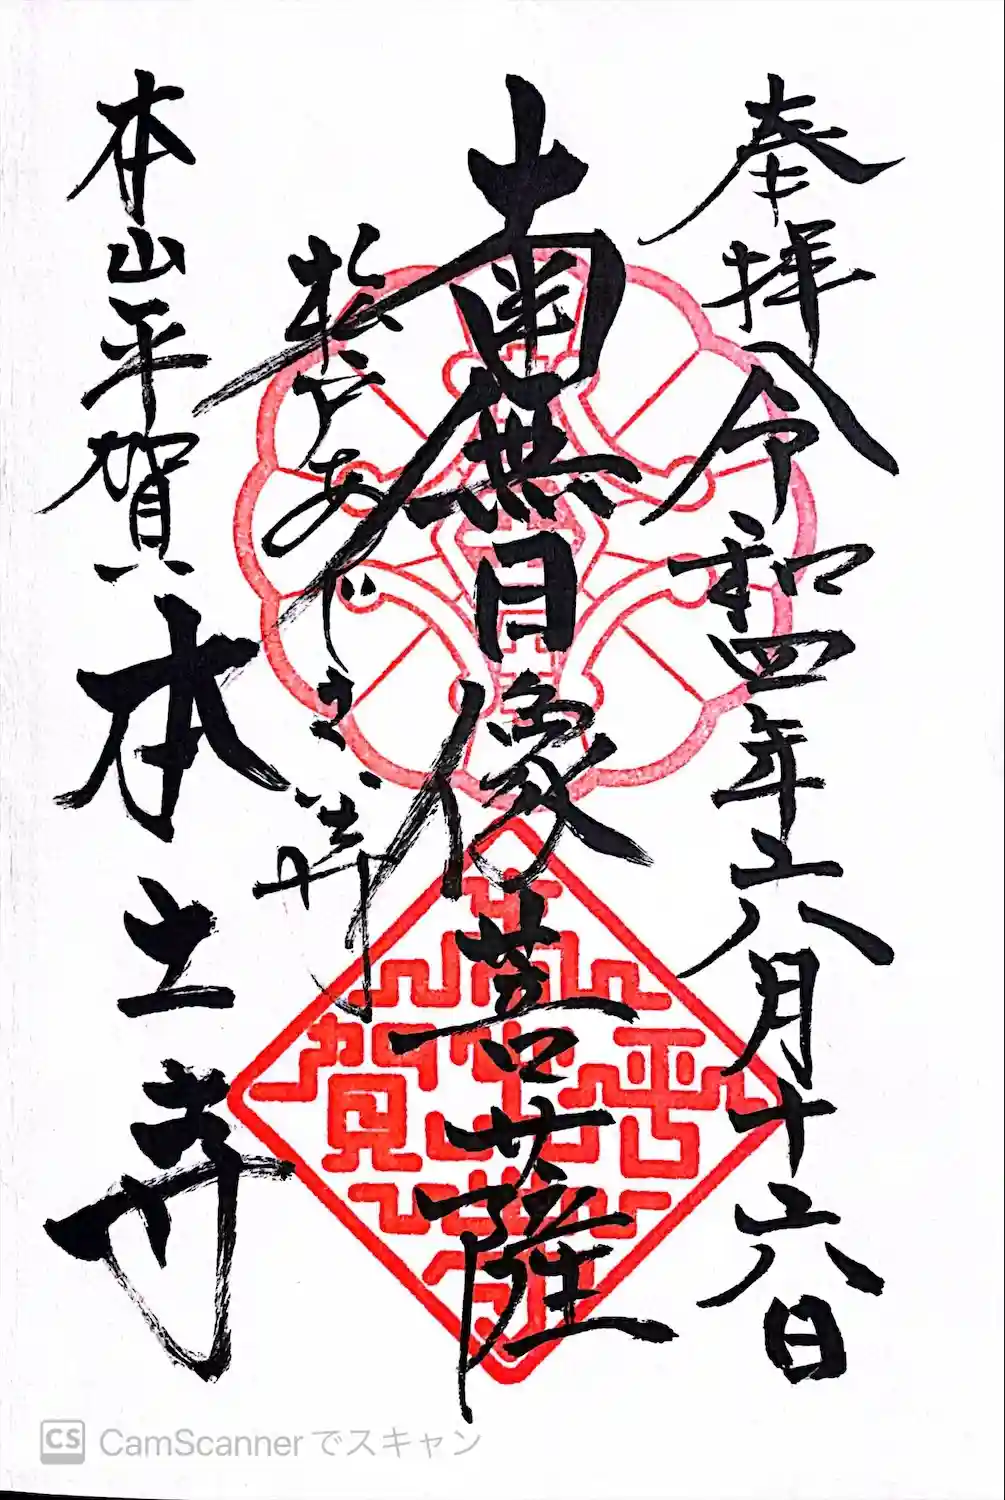 奉拝 令和四年六月十六日
南無日像菩薩
松戸あじさい寺
本山平賀 本土寺
CS CamScannerでスキャン